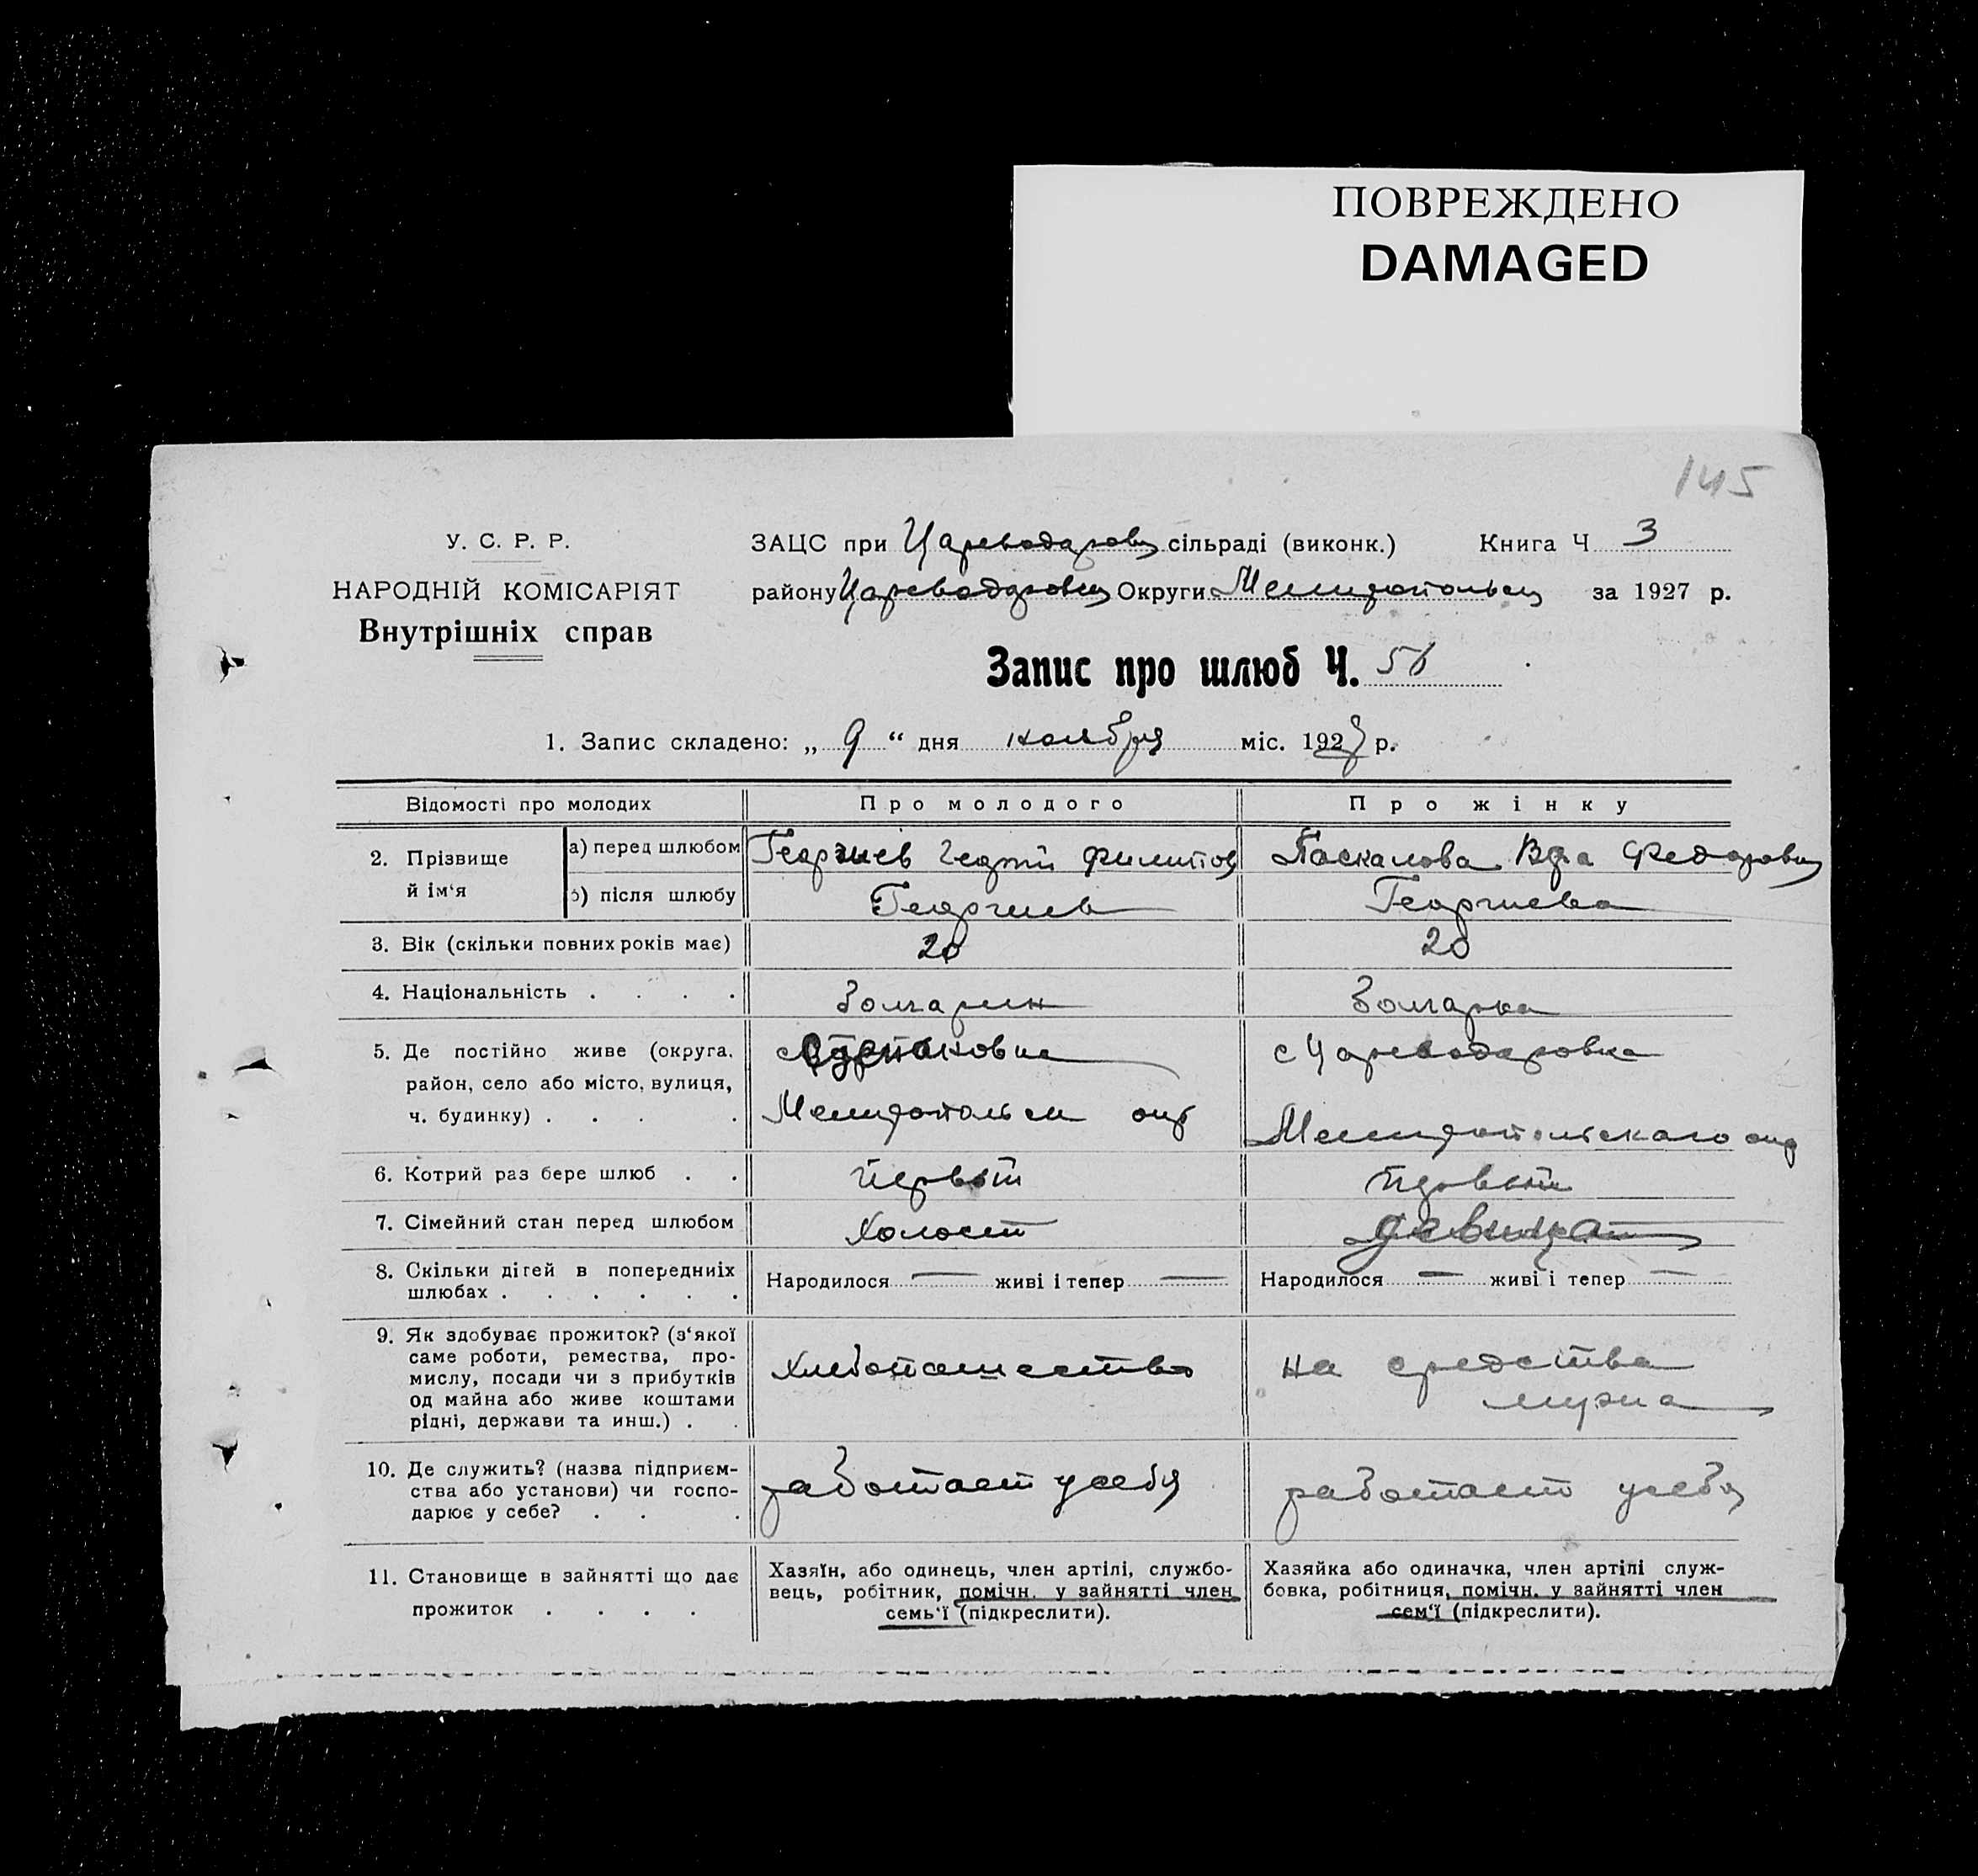 ПОВРЕЖДЕНО
DAMAGED
145
У. С. Р. Р.
НАРОДНІЙ КОМІСАРІЯТ
Внутрішніх справ
ЗАЦС при Цареводаровск сільраді (виконк.) Книга Ч 3
району Цареводаровск Округи Мелитопольск за 1927 р.
Запис про шлюб Ч. 56
1. Запис складено: „ 9 “ дня ноября міс. 1927 р.
Відомості про молодих Про молодого Про жінку
2. Прізвище й ім‘я а) перед шлюбом Георгиев Георгий Филипов Паскалова Вера Федоровн
б) після шлюбу Георгиев Георгиева
3. Вік (скільки повних років має) 20 20
4. Національність . . . . Болгарин Болгарка
5. Де постійно живе (округа, с Цареводаровка
район, село або місто, вулиця,
ч. будинку) . . . . Мелитопольск окр Мелитопольскаго окр
6. Котрий раз бере шлюб . . первый первый
7. Сімейний стан перед шлюбом Холост девица
8. Скільки дітей в попередниіх Народилося — живі і тепер — Народилося — живі і тепер —
шлюбах . . . . . .
9. Як здобуває прожиток? (з‘якої
саме роботи, ремества, про-
мислу, посади чи з прибутків Хлебопашество на средства
од майна або живе коштами мужа
рідні, держави та инш.) . .
10. Де служить? (назва підприєм-
ства або установи) чи госпо- работает у себя работает у себя
дарює у себе? . . .
11. Становище в зайнятті що дає
прожиток . . . .
Хазяїн, або одинець, член артілі, службо-
вець, робітник, помічн. у зайнятті член
семь‘ї (підкреслити).
Хазяйка або одиначка, член артілі служ-
бовка, робітниця, помічн. у зайнятті член
сем‘ї (підкреслити).